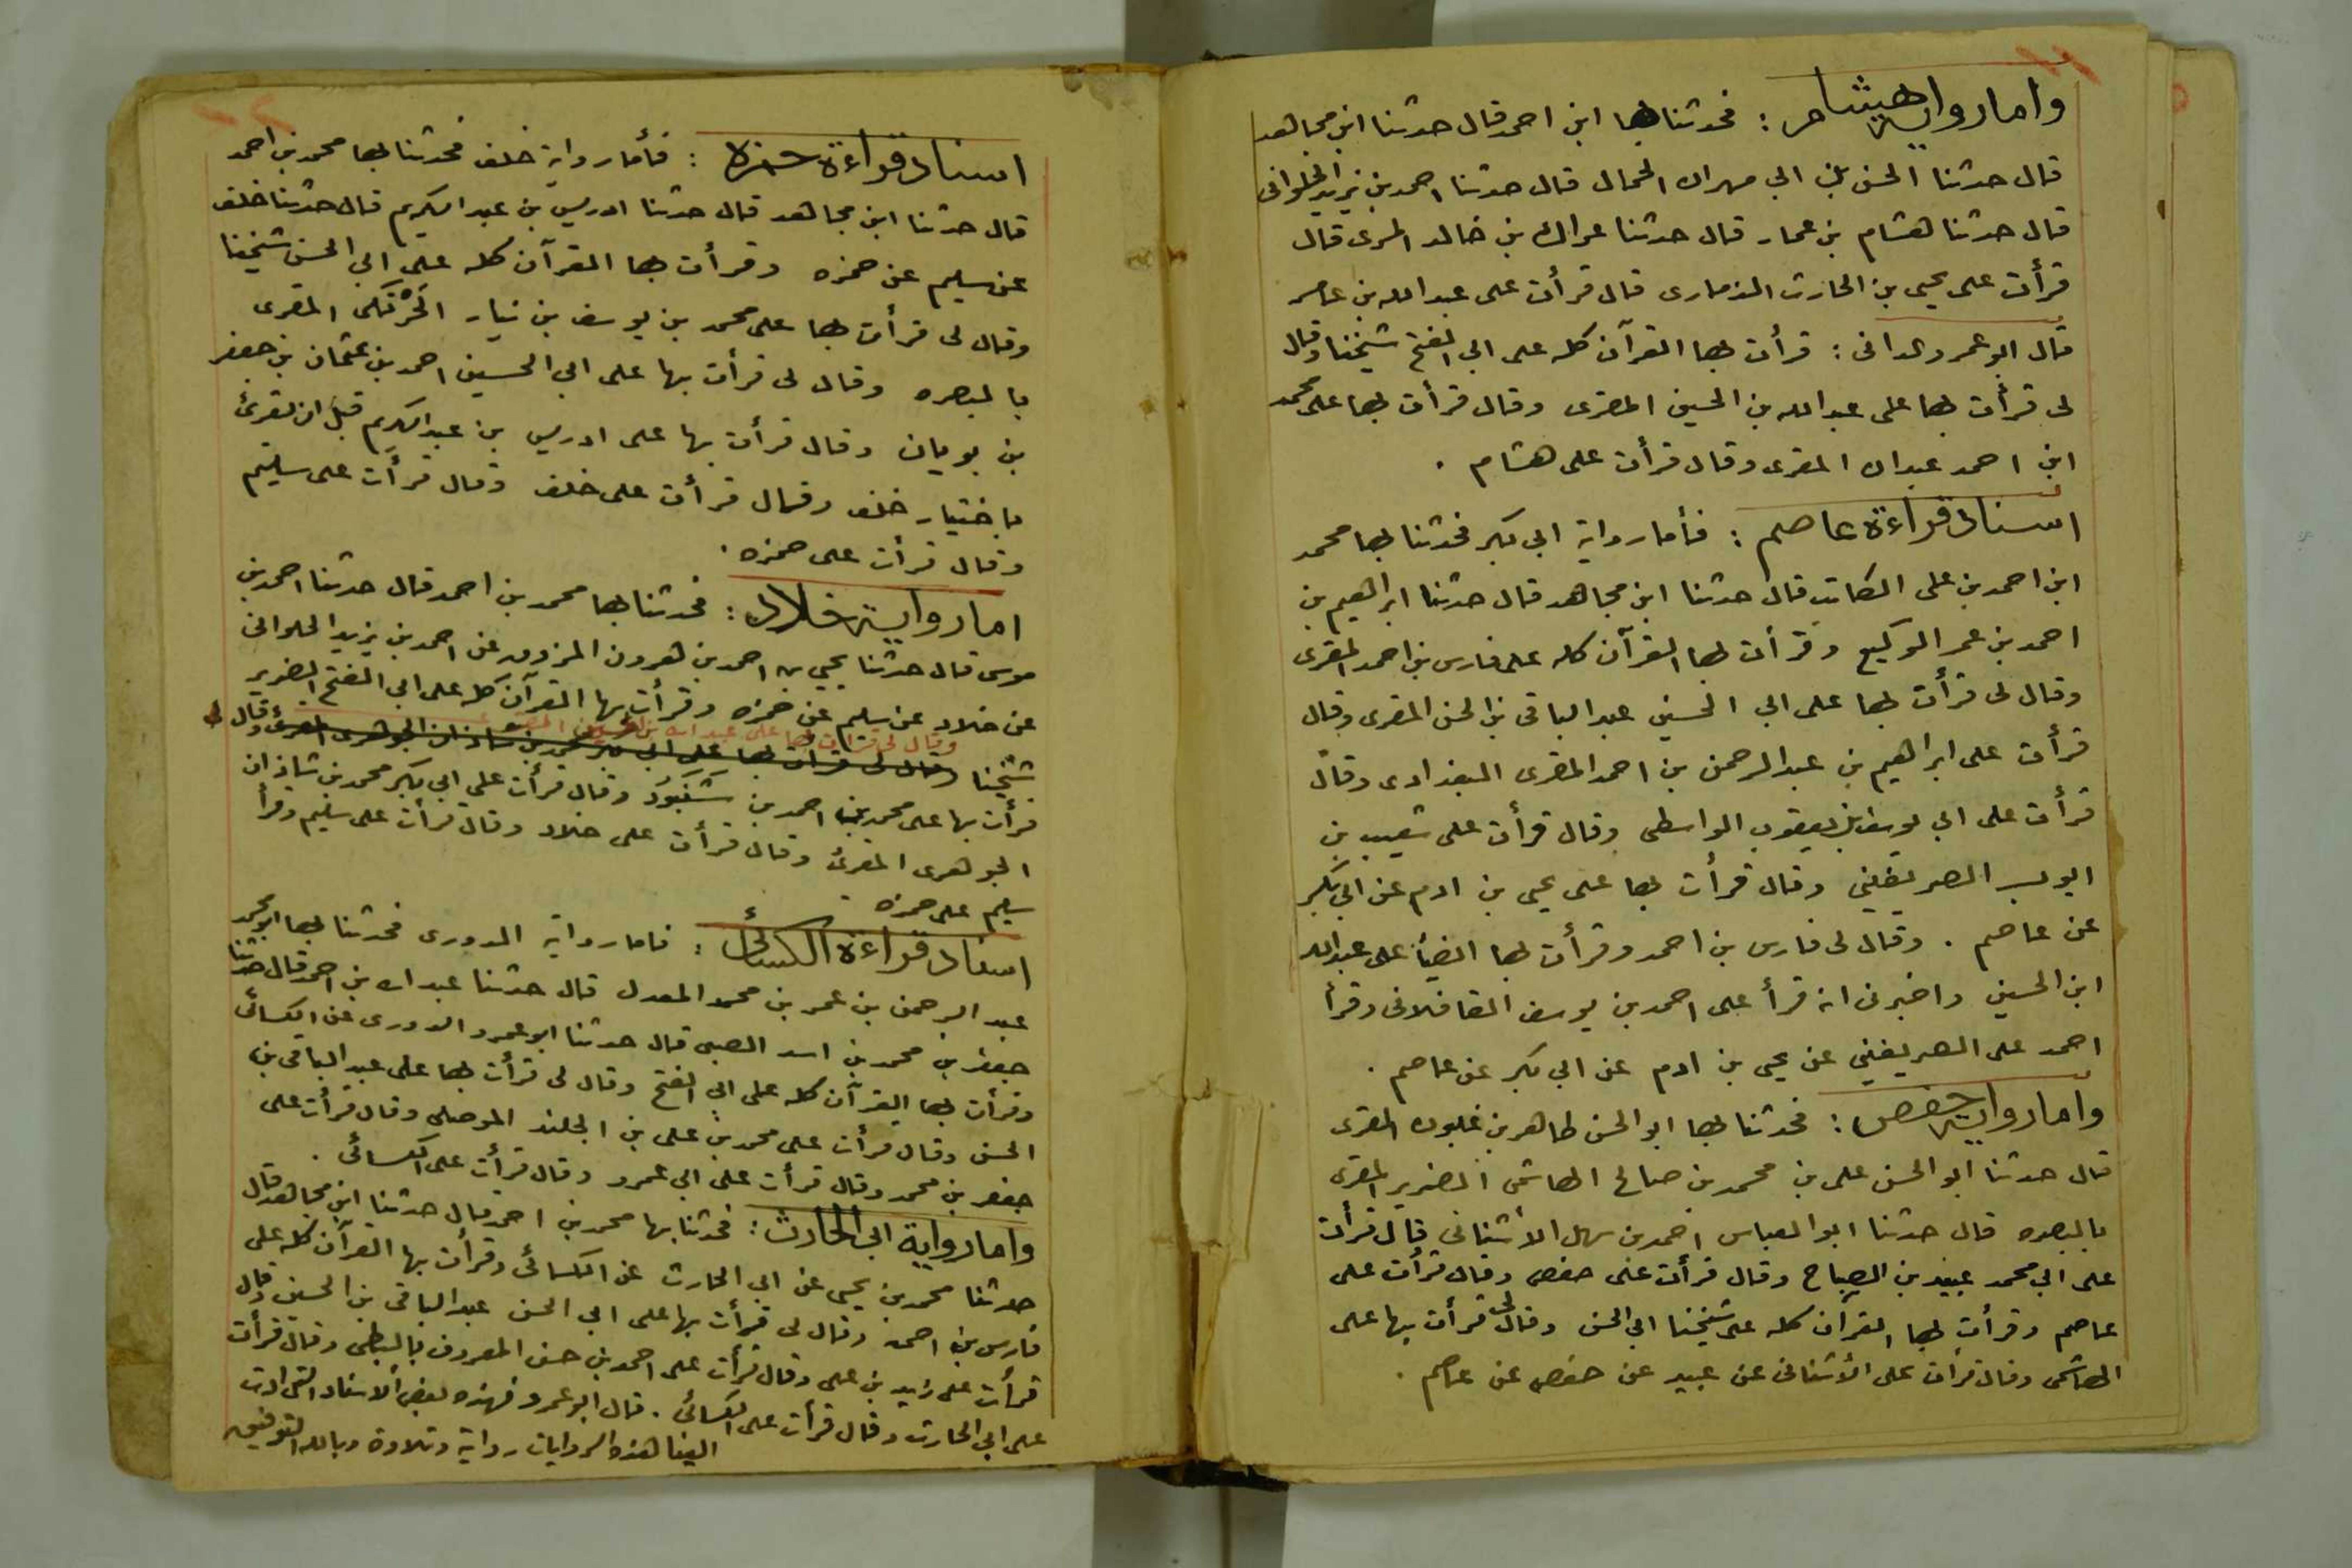 واما رواية هشام : فحدثنا بها ابن احمد قال حدثنا ابن مجاهد
قال حدثنا الحسن بن ابي مهران الحمال قال حدثنا احمد بن يزيد الحلواني
قال حدثنا هشام بن عمار قال حدثنا عراك بن خالد المرى قال
قرأت على يحيى بن الحارث الذمارى قال قرأت على عبدالله بن عامر
قال ابو عمرو الدانى : قرأت بها القرآن كله على ابي الفتح شيخنا وقال
لى قرأت بها على عبدالله بن الحسين المقرى وقال قرأت بها على محمد
ابن احمد عبدان المقرى وقال قرأت على هشام .
اسناد قراءة عاصم : فأما رواية ابي بكر فحدثنا بها محمد
ابن احمد بن على الكاتب قال حدثنا ابن مجاهد قال حدثنا ابراهيم بن
احمد بن عمر الوكيع وقرأت بها القرآن كله على فارس بن احمد المقرى
وقال لى قرأت بها على ابي الحسين عبد الباقى بن الحسن المقرى وقال
قرأت على ابراهيم بن عبد الرحمن بن احمد المقرى البغدادى وقال
قرأت على ابي يوسف بن يعقوب الواسطى وقال قرأت على شعيب بن
ايوب الصريفينى وقال قرأت بها على يحي بن ادم عن ابي بكر
عن عاصم . وقال لى فارس بن احمد وقرأت بها ايضاً على عبدالله
ابن الحسين واخبرنى انه قرأ على احمد بن يوسف القافلانى وقرأ
احمد على الصريفينى عن يحي بن ادم عن ابي بكر عن عاصم .
واما رواية حفص : فحدثنا بها ابو الحسن طاهر بن غلبون المقرى
قال حدثنا ابو الحسن على بن محمد بن صالح الهاشمى الضرير المقرى
بالبصره قال حدثنا ابو العباس احمد بن سهل الأشنانى قال قرأت
على ابي محمد عبيد بن الصباح وقال قرأت على حفص وقال قرأت على
عاصم وقرأت بها القرآن كله على شيخنا ابي الحسن وقال لى قرأت بها على
الهاشمى وقال قرأت على الأشنانى عن عبيد عن حفص عن عاصم .
اسناد قراءة حمزه : فأما رواية خلف فحدثنا بها محمد بن احمد
قال حدثنا ابن مجاهد قال حدثنا ادريس بن عبد الكريم قال حدثنا خلف
عن سليم عن حمزه وقرأت بها القرآن كله على ابي الحسن شيخنا
وقال لى قرأت بها على محمد بن يوسف بن نهار الحَرْتَكى المقرى
بالبصره وقال لى قرأت بها على ابي الحسين احمد بن عثمان بن جعفر
بن بويان وقال قرأت بها على ادريس بن عبد الكريم قبل ان يقرئ
باختيار خلف وقال قرأت على خلف وقال قرأت على سليم
وقال قرأت على حمزه .
اما رواية خلاد : فحدثنا بها محمد بن احمد قال حدثنا احمد بن
موسى قال حدثنا يحيى بن احمد بن هرون المزوق عن احمد بن يزيد الحلوانى
عن خلاد عن سليم عن حمزه وقرأت بها القرآن كله على ابي الفتح الضرير
وقال لى قرأت بها على عبدالله بن الحسين المقرى
شيخنا وقال لى قرأت بها على ابي بكر محمد بن شاذان الجوهرى المقرئ وقال
قرأت بها على محمد بن احمد بن شنبوذ وقال قرأت على ابي بكر محمد بن شاذان
الجوهرى المقرئ وقال قرأت على خلاد وقال قرأت على سليم وقرأ
سليم على حمزه
اسناد قراءة الكسائى : فاما رواية الدورى فحدثنا بها ابو محمد
عبد الرحمن بن عمر بن محمد المعدل قال حدثنا عبدالله بن احمد قال حدثنا
جعفر بن محمد بن اسد الصبى قال حدثنا ابو عمرو الدورى عن الكسائى
وقرأت بها القرآن كله على ابي الفتح وقال لى قرأت بها على عبد الباقى بن
الحسن وقال قرأت على محمد بن على بن الجلند الموصلى وقال قرأت على
جعفر بن محمد وقال قرأت على ابي عمرو وقال قرأت على الكسائى .
واما رواية ابي الحارث : فحدثنا بها محمد بن احمد قال حدثنا ابن مجاهد قال
حدثنا محمد بن يحيى عن ابي الحارث عن الكسائى وقرأت بها القرآن كله على
فارس بن احمد وقال لى قرأت بها على ابي الحسن عبد الباقى بن الحسين وقال
قرأت على زيد بن على وقال قرأت على احمد بن حسن المعروف بالبطى وقال قرأت
على ابي الحارث وقال قرأت على الكسائى . قال ابو عمرو فهذه بعض الاسناد التى ادت
الينا هذه الروايات رواية وتلاوة وبالله التوفيق